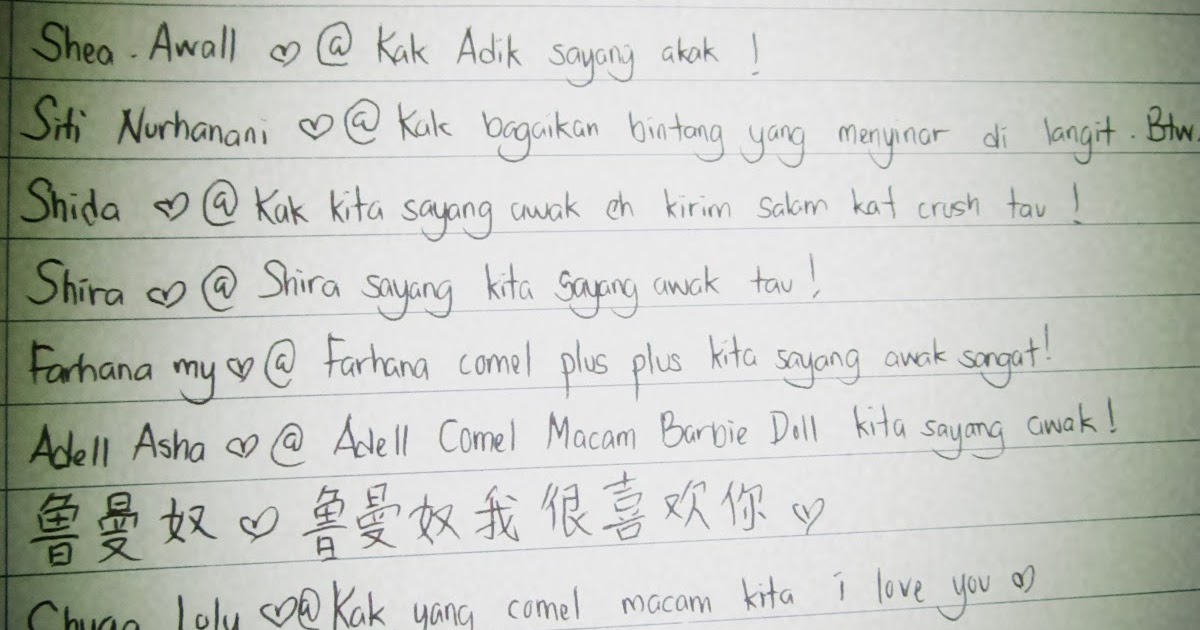 Shea . Awall ♡ @ Kak Adik sayang akak !
Siti Nurhanani ♡ @ Kak bagaikan bintang yang menyinar di langit . Btw.
Shida ♡ @ Kak kita sayang awak eh kirim salam kat crush tau !
Shira ♡ @ Shira sayang kita sayang awak tau !
Farhana my ♡ @ Farhana comel plus plus kita sayang awak sangat!
Adell Asha ♡ @ Adell Comel Macam Barbie Doll kita sayang awak !
魯曼奴 ♡ 魯曼奴我很喜欢你 ♡
♡@Kak yang comel macam kita i love you ♡